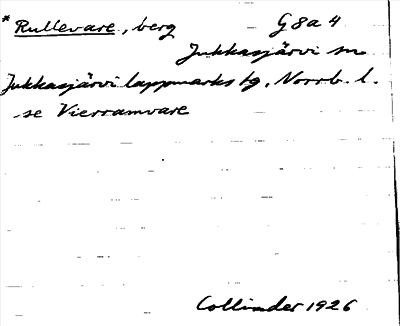 * Rullevare, berg G8a4
Jukkasjärvi sn
Jukkasjärvi lappmarks tg, Norrb. l.
se Vierramvare
Collinder 1926